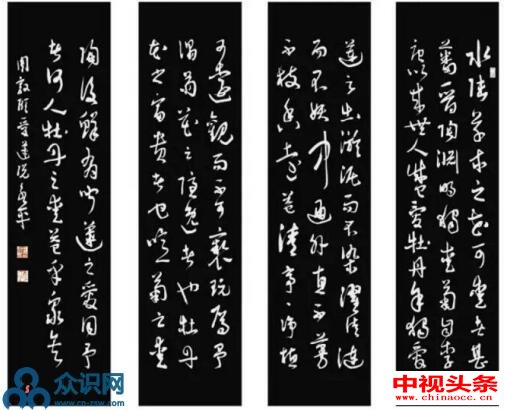 水陸草木之花可愛者甚
蕃晉陶淵明獨愛菊自李
唐以來世人盛愛牡丹予獨愛
蓮之出淤泥而不染濯清漣
而不妖中通外直不蔓
不枝香遠益清亭亭淨植
可遠觀而不可褻玩焉予
謂菊花之隱逸者也牡丹
花之富貴者也噫菊之愛
陶後鮮有聞蓮之愛同予
者何人牡丹之愛宜乎眾矣
周敦頤愛蓮說
众识网
www.cn-zsw.com
中视头条
www.chinaocc.cn